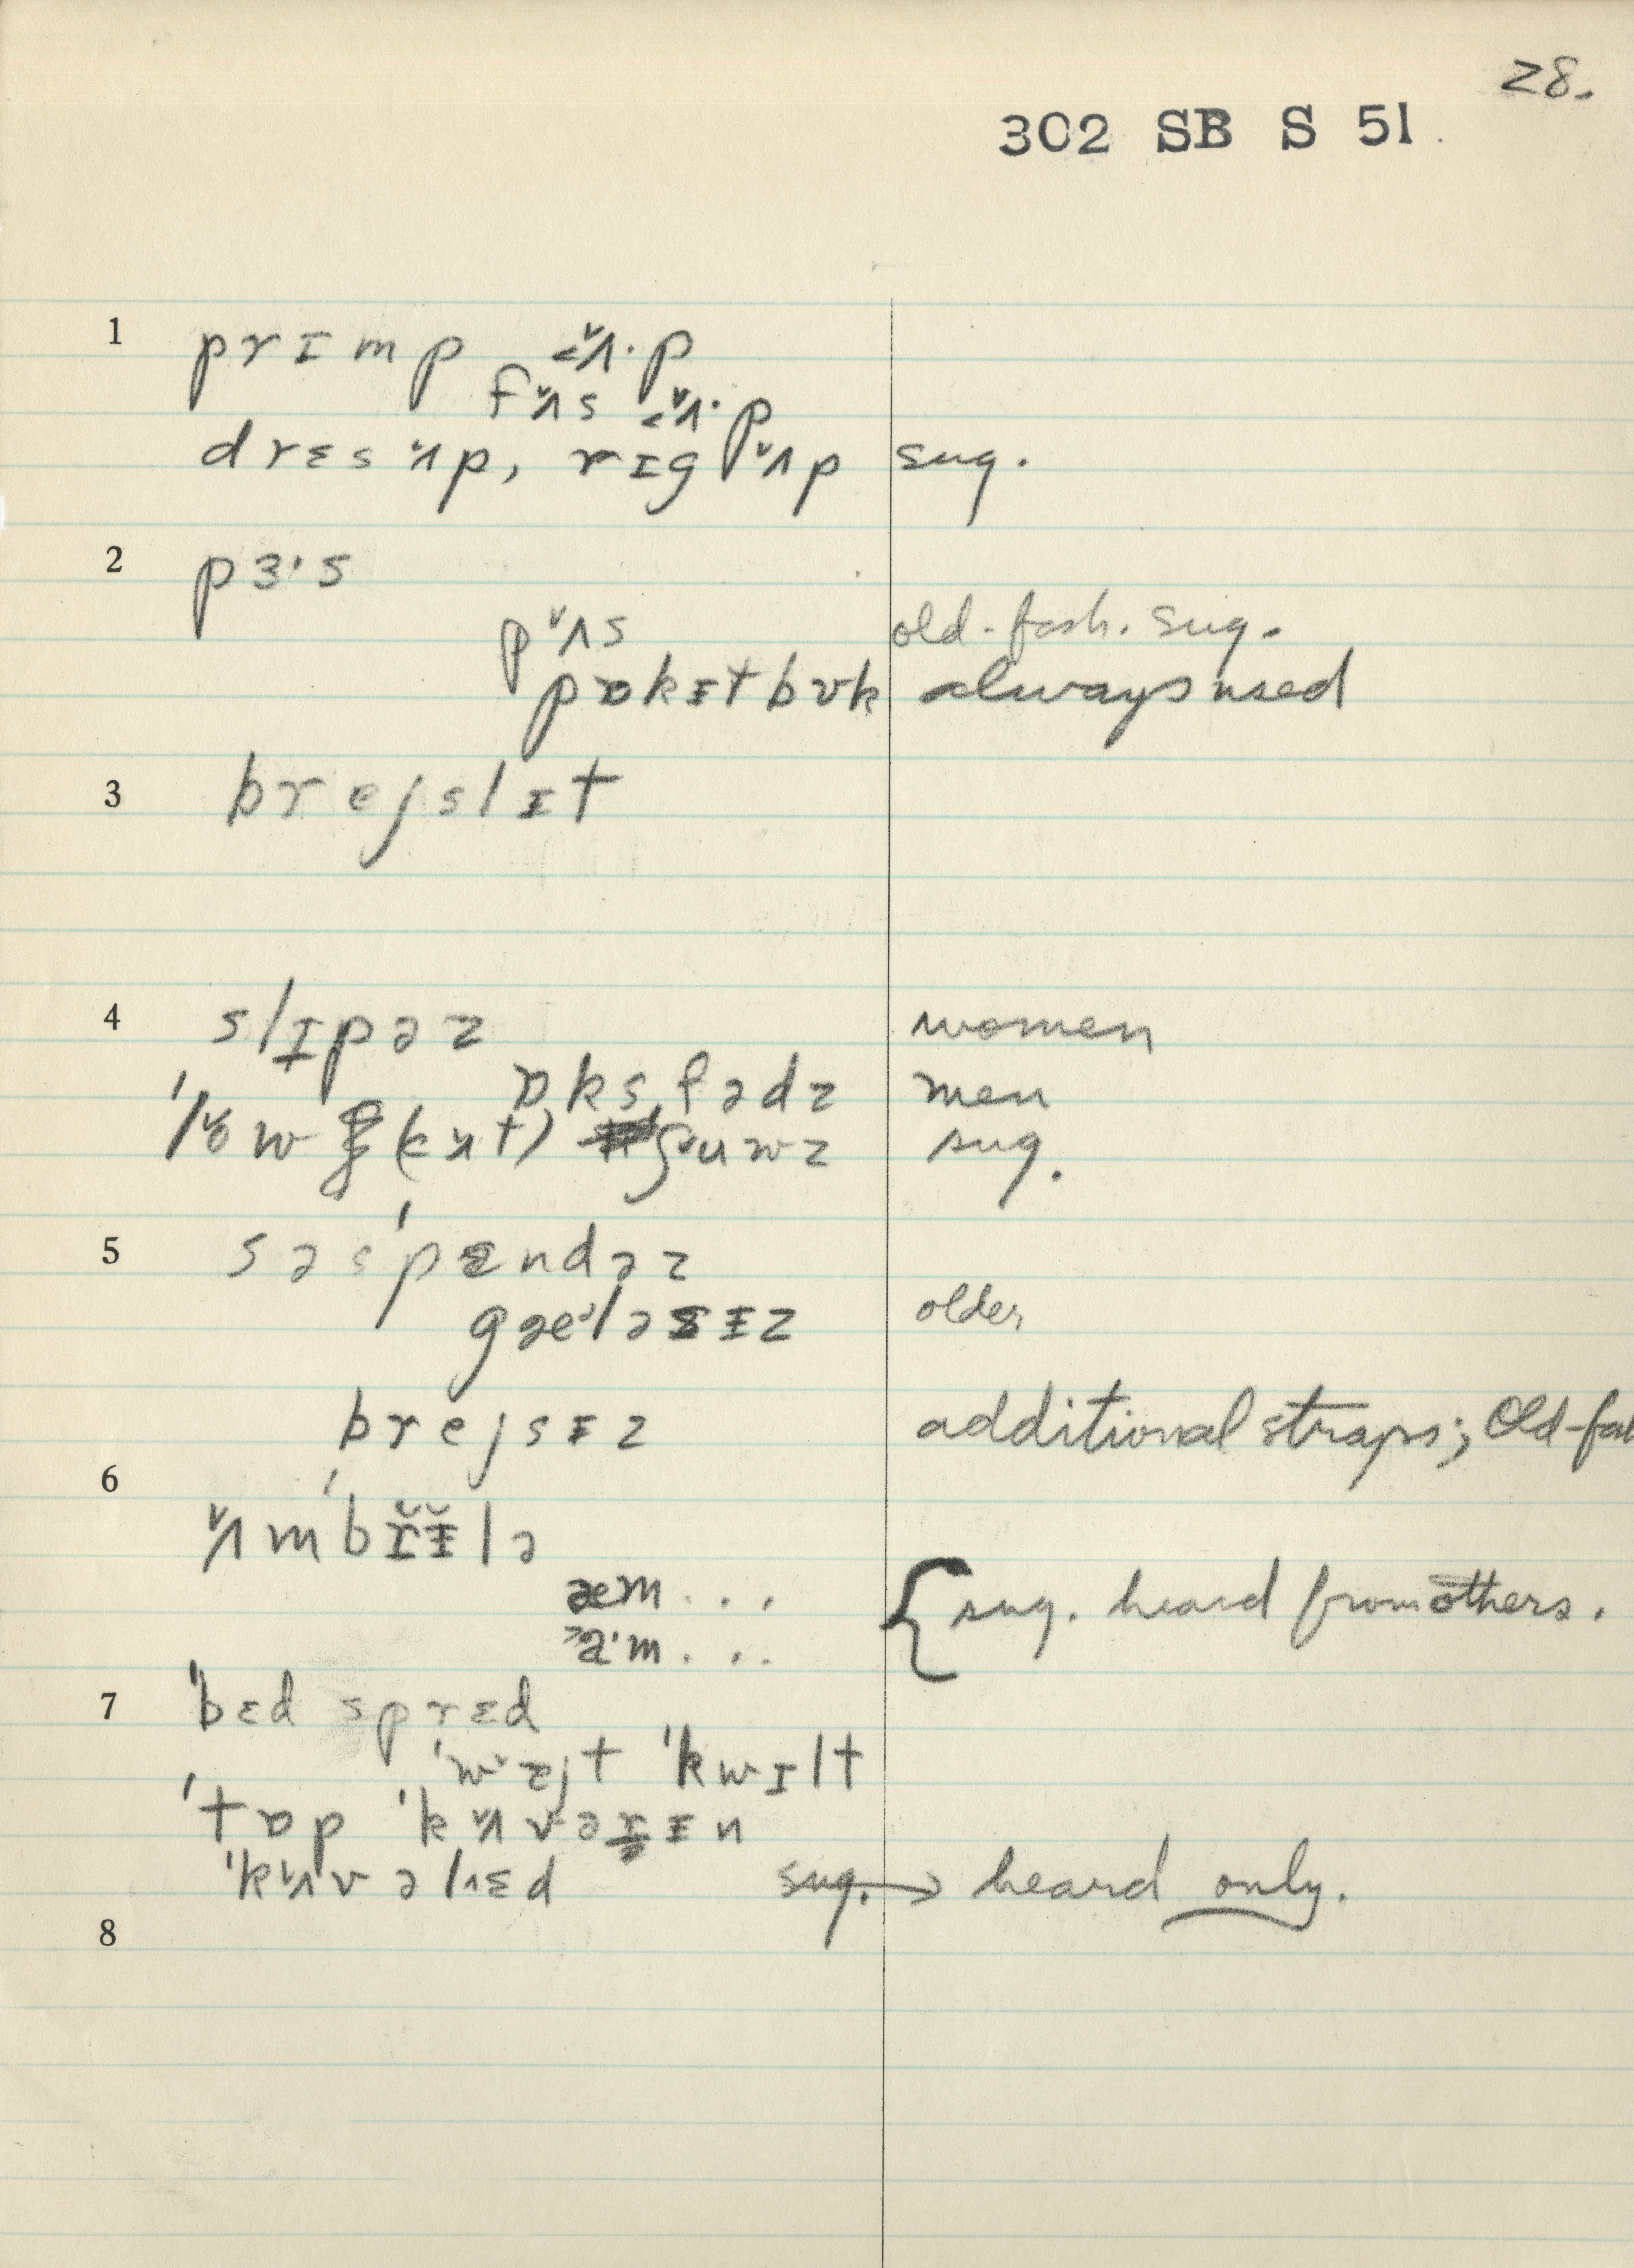 28.
302 SB S 51
1 prɪmp <ʌ̌·p
fʌ̌s <ʌ̌·p
drɛs ʌ̌p, rɪg ʌ̌p sug.
2 pɜ·s
pʌ̌s old-fash. sug.
pɒkɨtbʊk always used
3 brejslɪt
4 slɪpəz women
ɒksfədz men
sug.
5 səs'pɛndəz
gæləsɨz older
brejsɨz additional straps; Old-fa
6 ʌ̌m'brɨ̆lə
æm... { sug. heard from others.
>a·m...
7 'bɛd sprɛd
'kwɪlt
'tɒp 'kʌ̌vərɨn
'kʌ̌vəlɛd sug. → heard only.
8